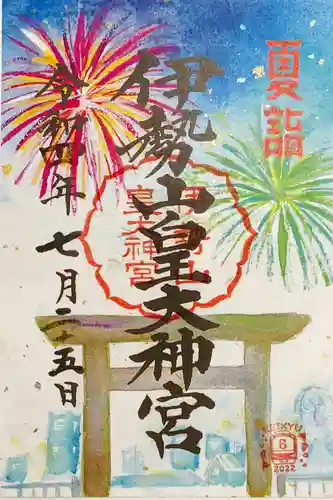 夏詣
伊勢山皇大神宮
令和四年七月二十五日
伊勢山
皇大神宮
KEIKYU
8
2022